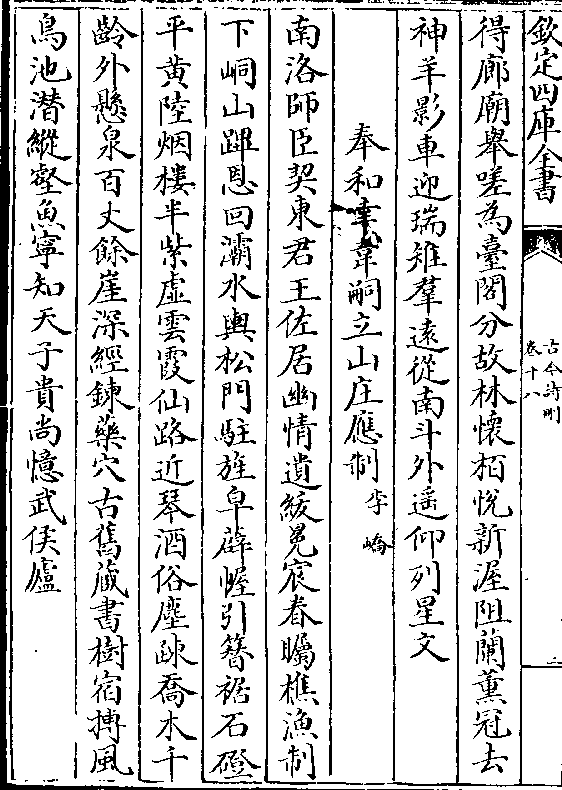 欽定四庫全書
古今詩刪
卷十八
二
得廊廟舉嗟為臺閣分故林懷栢悅新渥阻蘭薫冠去
神羊影車迎瑞雉羣遠從南斗外遥仰列星文
奉和幸韋嗣立山庄應制李嶠
南洛師臣契東君王佐居幽情遺紱冕宸眷矚樵漁制
下峒山蹕恩回灞水輿松門駐旌臯薜幄引簪裾石磴
平黄陸烟樓半紫虛雲霞仙路近琴酒俗塵踈喬木千
齡外懸泉百丈餘崖深經鍊藥穴古舊藏書樹宿摶風
鳥池潛縱壑魚寧知天子貴尚憶武侯廬